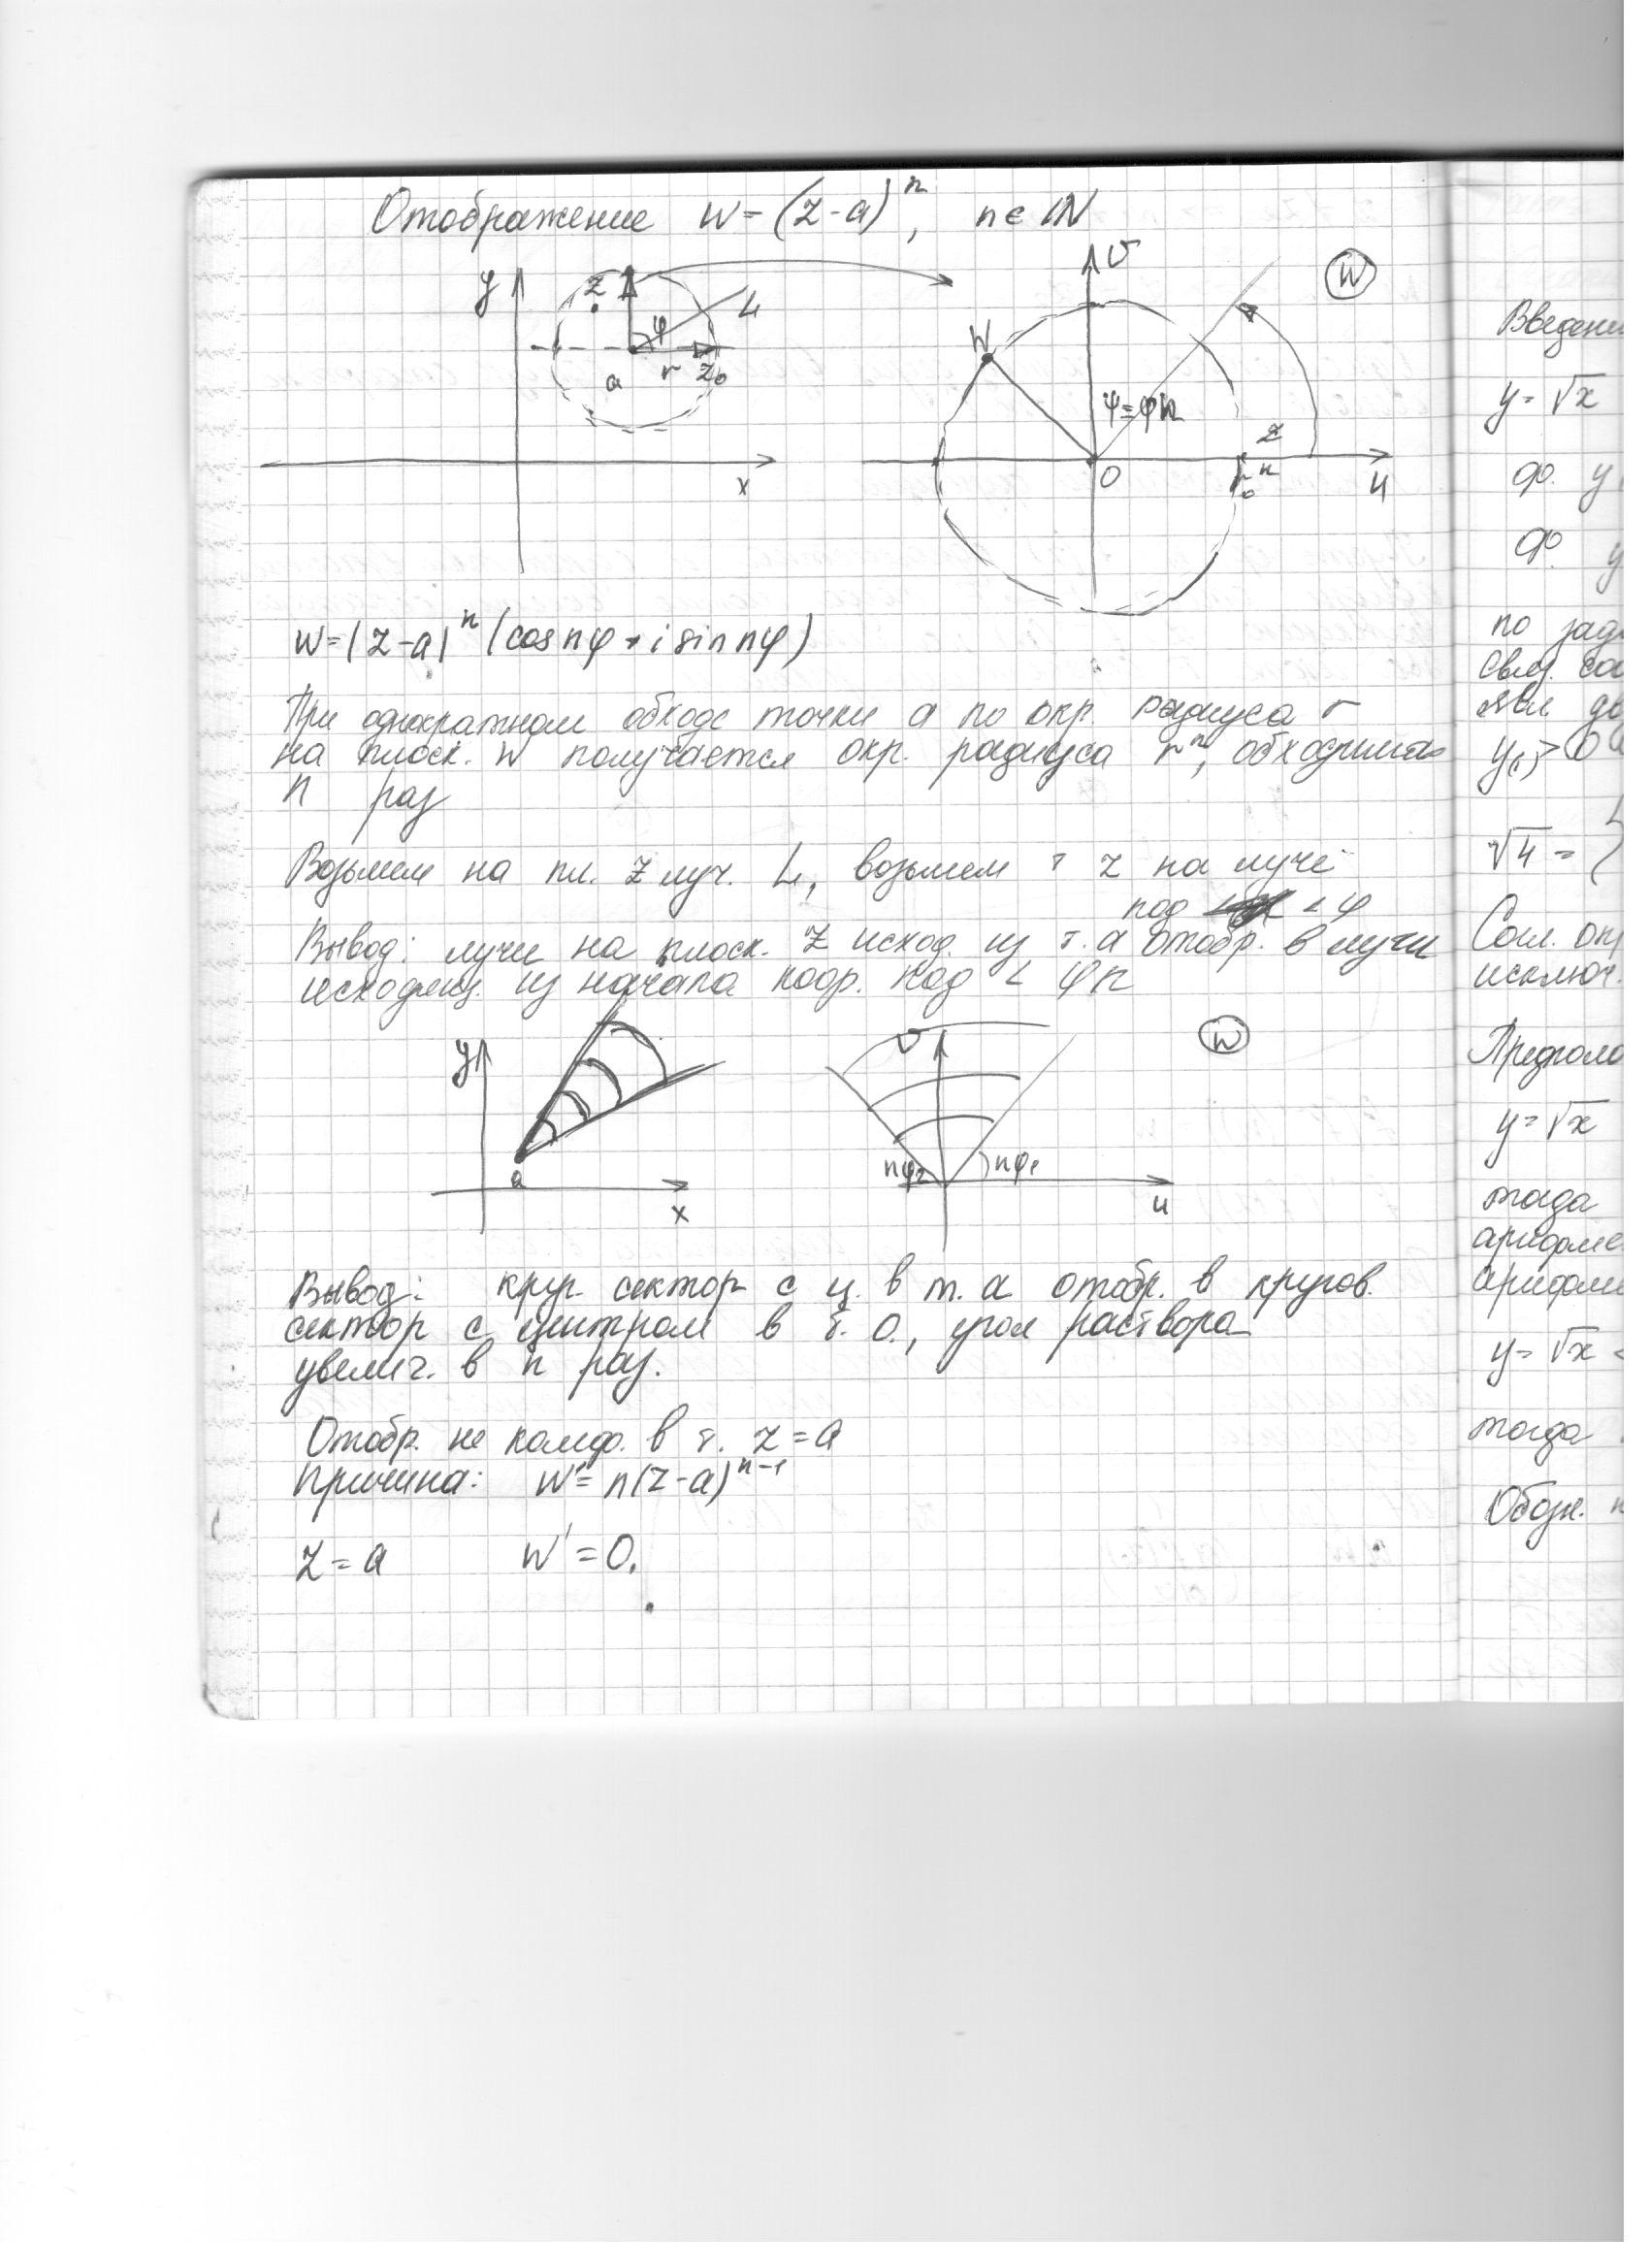 Отображение w = (z-a)ⁿ, n ∈ ℕ
y
z
φ
L
a
r
z₀
x
v
W
W
ψ=φn
z
O
r₀ⁿ
u
w=|z-a|ⁿ(cos nφ + i sin nφ)
При однократном обходе точки a по окр. радиуса r
на плоск. w получается окр. радиуса rⁿ, обходимая
n раз
Возьмем на пл. z луч. L, возьмем т z на луче
под < φ
Вывод: лучи на плоск. z исход. из т. a отобр. в лучи
исходящ. из начала коор. под < φn
y
a
x
v
W
nφ₂
nφ₁
u
Вывод: круг. сектор с ц. в т. a отобр. в кругов.
сектор с центром в т. O., угол раствора
увелич. в n раз.
Отобр. не конф. в т. z=a
Причина: w'= n(z-a)ⁿ⁻¹
z=a w'=0.
Введени
y= √x
ф. y
ф. y
по зад
явл дв
y₍₁₎>0
√4 = {
Согл. оп
исключ.
Предполо
y= √x
тогда
арифме
арифм
y= √x
тогда
Обозн. н